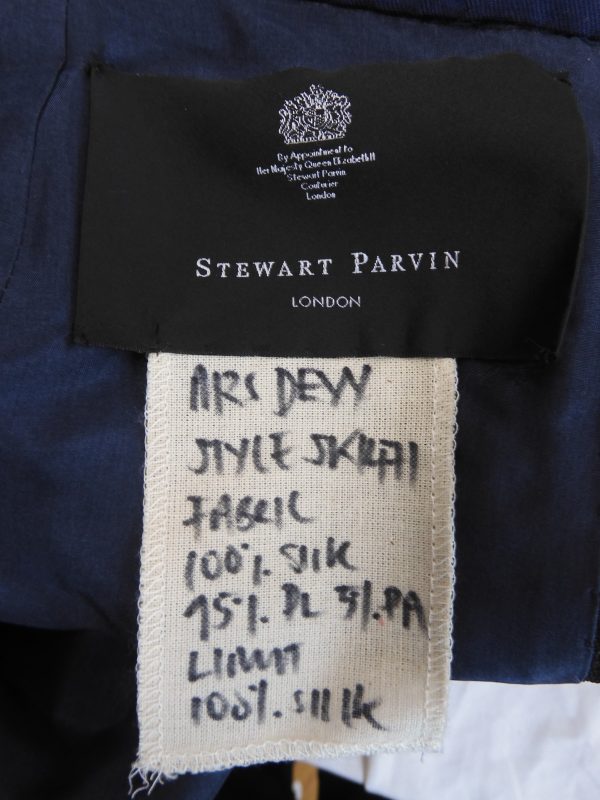 By Appointment to
Her Majesty Queen Elizabeth II
Stewart Parvin
Couturier
London
STEWART PARVIN
LONDON
MRS
STYLE
FABRIC
100%. SILK
95%. PL 5%. PA
100%. SILK